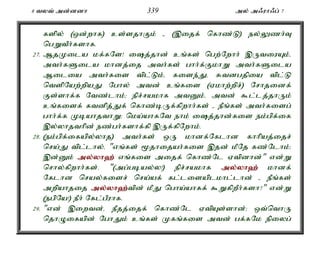 8 வலவ் அன்னனா 339 அல் அஃராஃப் 7
களில் (ஒன்றாக) உள்ளதாகும் . (இதைக் கொண்டு) நல்லுணர்வு பெறுவீர்களாக.
27. ஆதமுடைய மக்களே! ஷைத்தான் உங்கள் பெற்றோர் இருவரையும், அவர்களுடைய மானத்தை அவர்கள் பார்க்குமாறு அவர்களுடைய ஆடையை அவர்களை விட்டும். களைந்து, சுவனபதியை விட்டு வெளியேற்றியது போல் அவன் உங்களை (ஏமாற்றிச்) சோதனைக் குள்ளாக்க வேண்டாம். நிச்சயமாக அவனும், அவன் கூட்டத்தாரும் உங்களைக் கவனித்துக் கொண்டிருக்கிறார்கள் . நீங்கள் அவர்களைப் பார்க்க முடியாதவாறு; மெய்யாகவே நாம் ஷைத்தான்களை நம்பிக்கை இல்லாதவரின் நண்பர்களாக்கி இருக்கிறோம்.
28. (நம்பிக்கையில்லாத) அவர்கள் ஒரு மானக்கேடான காரியத்தைச் செய்து விட்டால், "எங்கள் மூதாதையர்களை இதன் மீதே கண்டோம்; இன்னும் அல்லாஹ் எங்களை அதைக் கொண்டே ஏவினான்" என்று சொல்கிறார்கள். "(அப்படியல்ல!) நிச்சயமாக அல்லாஹ் மானக் கேடான செயல்களைச் செய்யக் கட்டளையிடமாட்டான் . நீங்கள் அறியாததை அல்லாஹ்வின் மீது பொய்யாகக் கூறுகிறீர்களா?" என்று (நபியே!) நீர் கேட்பீராக.
29. "என் இறைவன், நீதத்தைக் கொண்டே ஏவியுள்ளான்; ஒவ்வொரு தொழுகையின் போதும் உங்கள் முகங்களை அவன் பக்கமே நிலைப்